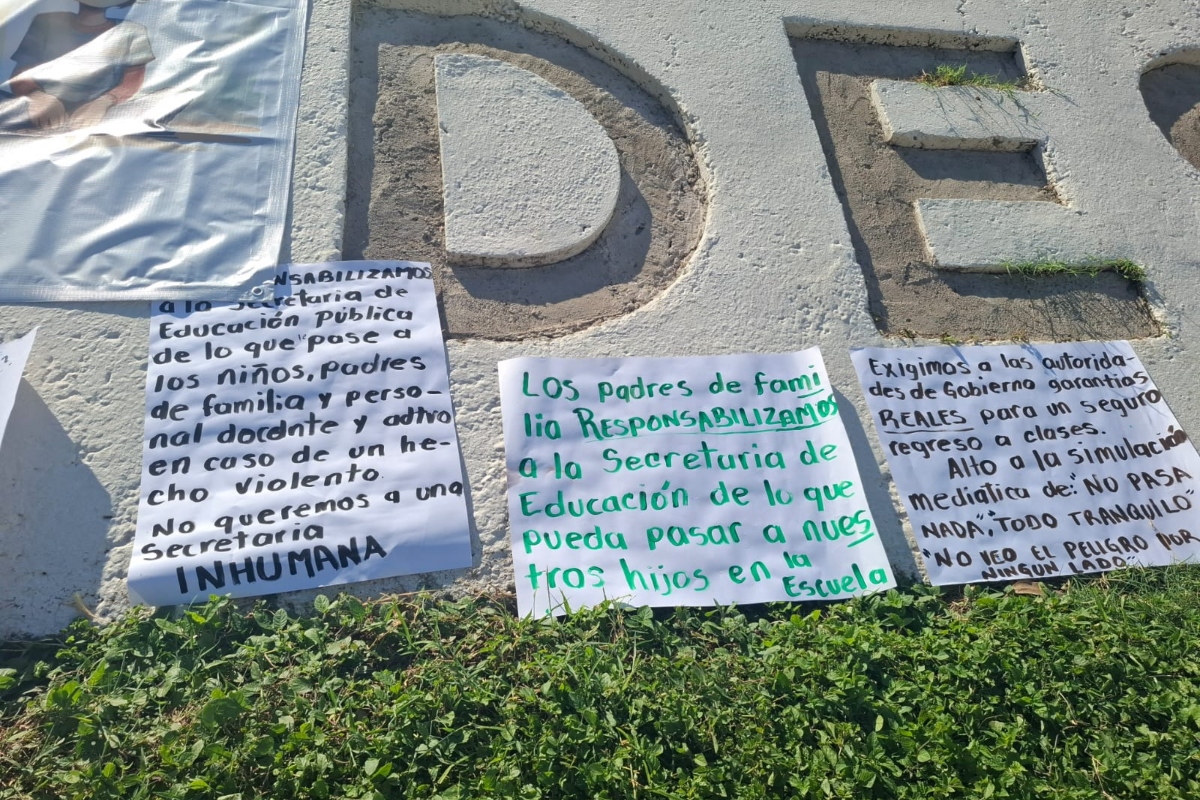 DE
NSABILIZAMOS
a la Secretaria de
Educación Pública
de lo que pase a
los niños, padres
de familia y perso-
nal docente y adtivo
en caso de un he-
cho violento.
No queremos a una
Secretaria
INHUMANA
Los padres de fami
lia RESPONSABILIZAMOS
a la Secretaria de
Educación de lo que
pueda pasar a nues
tros hijos en la
Escuela
Exigimos a las autorida-
des de Gobierno garantías
REALES para un seguro
regreso a clases.
Alto a la simulación
mediatica de: "NO PASA
NADA", "TODO TRANQUILO"
"NO VEO EL PELIGRO POR
NINGUN LADO"